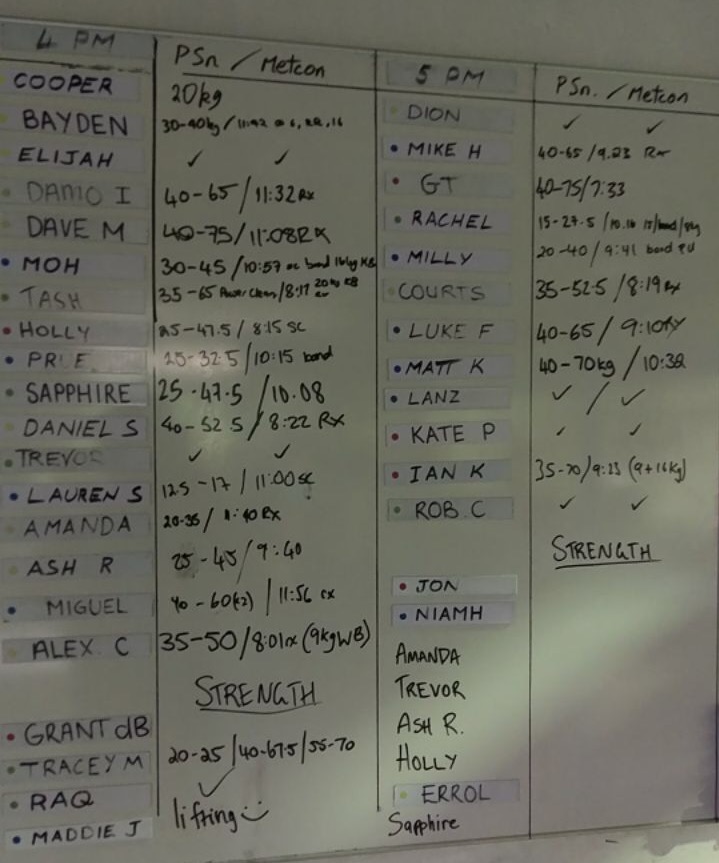 4 PM PSn / Metcon
COOPER 20kg
BAYDEN 30-40kg / 11:42
ELIJAH ✓ ✓
DAMO I 40-65 / 11:32 Rx
DAVE M 40-75 / 11:08 RX
MOH 30-45 / 10:57 band 16kg KB
TASH 35-65 Power Clean / 8:17 20kg KB
HOLLY 25-47.5 / 8:15 SC
PR E 25-32.5 / 10:15 band
SAPPHIRE 25-47.5 / 10.08
DANIEL S 40-52.5 / 8:22 Rx
TREVOR ✓ ✓
LAUREN S 12.5-17 / 11:00 sc
AMANDA 20-35 / :40 Rx
ASH R 25-45 / 9:40
MIGUEL 40-60(x2) / 11:56 rx
ALEX. C 35-50 / 8:01rx (9kgWB)
STRENGTH
GRANT dB
TRACEY M 20-25 / 40-67.5 / 55-70
RAQ ✓
MADDIE J lifting
5 PM PSn. / Metcon
DION ✓ ✓
MIKE H 40-65 / 9.23 Rx
GT 40-75 / 7:33
RACHEL 15-27.5 / 10.16
MILLY 20-40 / 9:41 band PU
COURTS 35-52.5 / 8:19 Rx
LUKE F 40-65 / 9:10
MATT K 40-70kg / 10:32
LANZ ✓ / ✓
KATE P ✓ ✓
IAN K 35-70 / 9:23 (9+16kg)
ROB. C ✓ ✓
STRENGTH
JON
NIAMH
AMANDA
TREVOR
ASH R.
HOLLY
ERROL
Sapphire